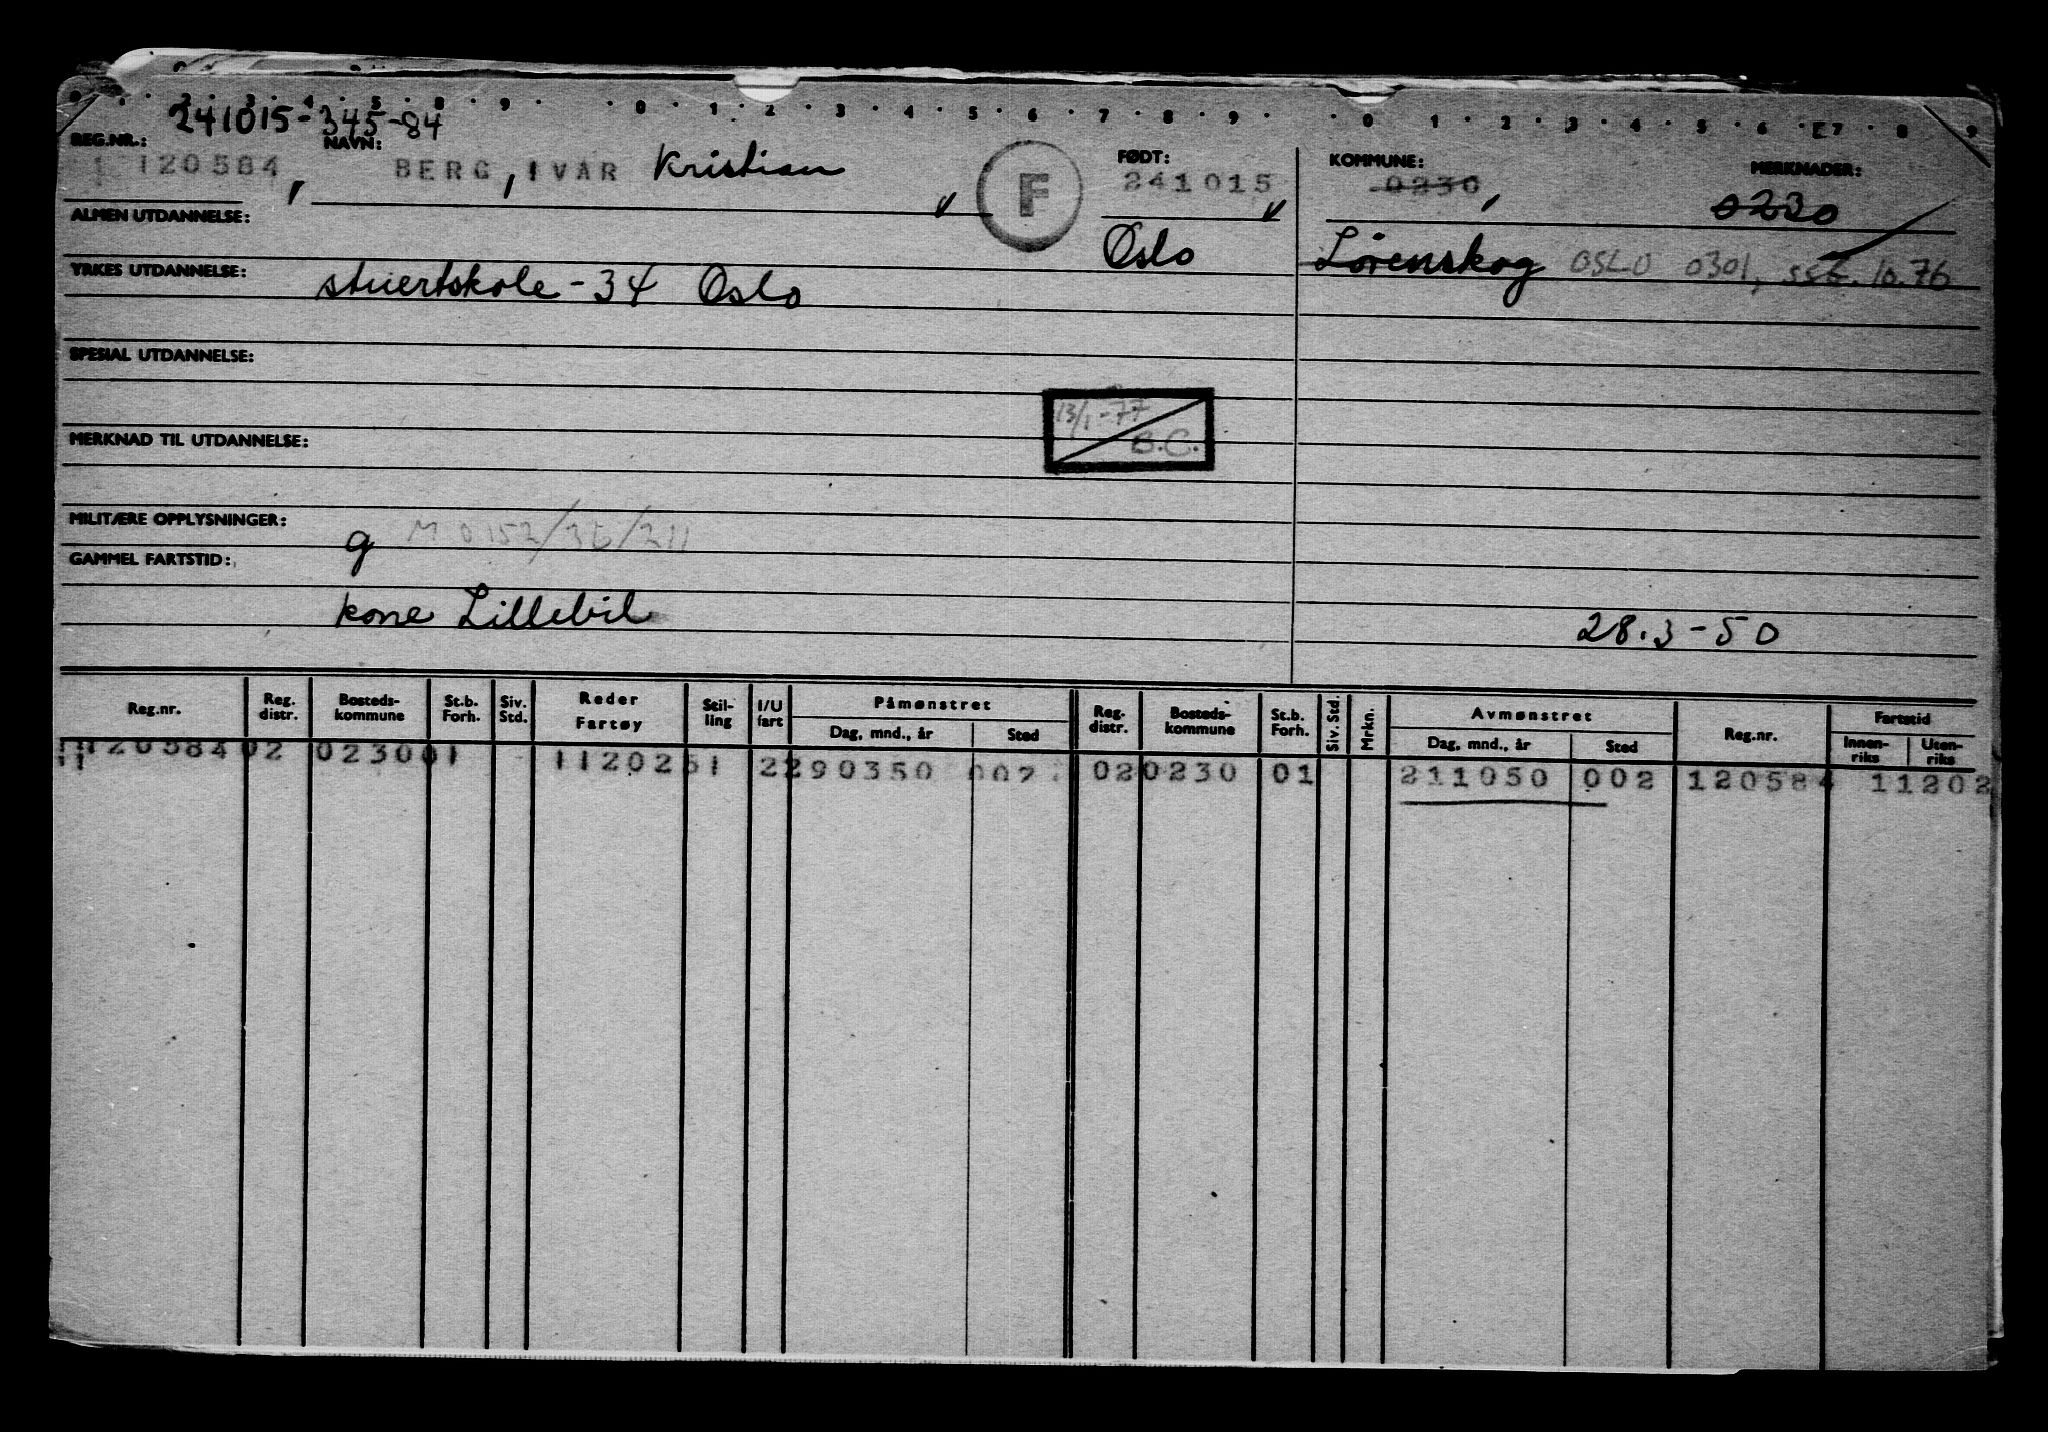 0 1 2 3 4 5 8 9 0 1 2 3 4 5 6 7 8 9 0 1 2 3 4 5 6 7 8 9
241015-345-84
REG.NR.: NAVN: FØDT: KOMMUNE: MERKNADER:
120584, BERG, IVAR Kristian F 241015 0230, 0230
ALMEN UTDANNELSE:
Oslo Lørenskog OSLO 0301, sst. 10.76
YRKES UTDANNELSE: stuertskole - 34 Oslo
SPESIAL UTDANNELSE:
13/1-77
B.C.
MERKNAD TIL UTDANNELSE:
MILITÆRE OPPLYSNINGER: g M 0152/3E/211
GAMMEL FARTSTID:
kone Lillebil 28.3-50
Reg.nr. Reg. distr. Bosteds-kommune St.b. Forh. Siv. Std. Reder Fartøy Stil-ling I/U fart Påmønstret Dag, mnd., år Sted Reg. distr. Bosteds-kommune St.b. Forh. Siv. Std. Mrkn. Avmønstret Dag, mnd., år Sted Reg.nr. Fartstid Innen-riks Uten-riks
120584 02 0230 01 11202 51 2 290350 002 02 0230 01 211050 002 120584 11202